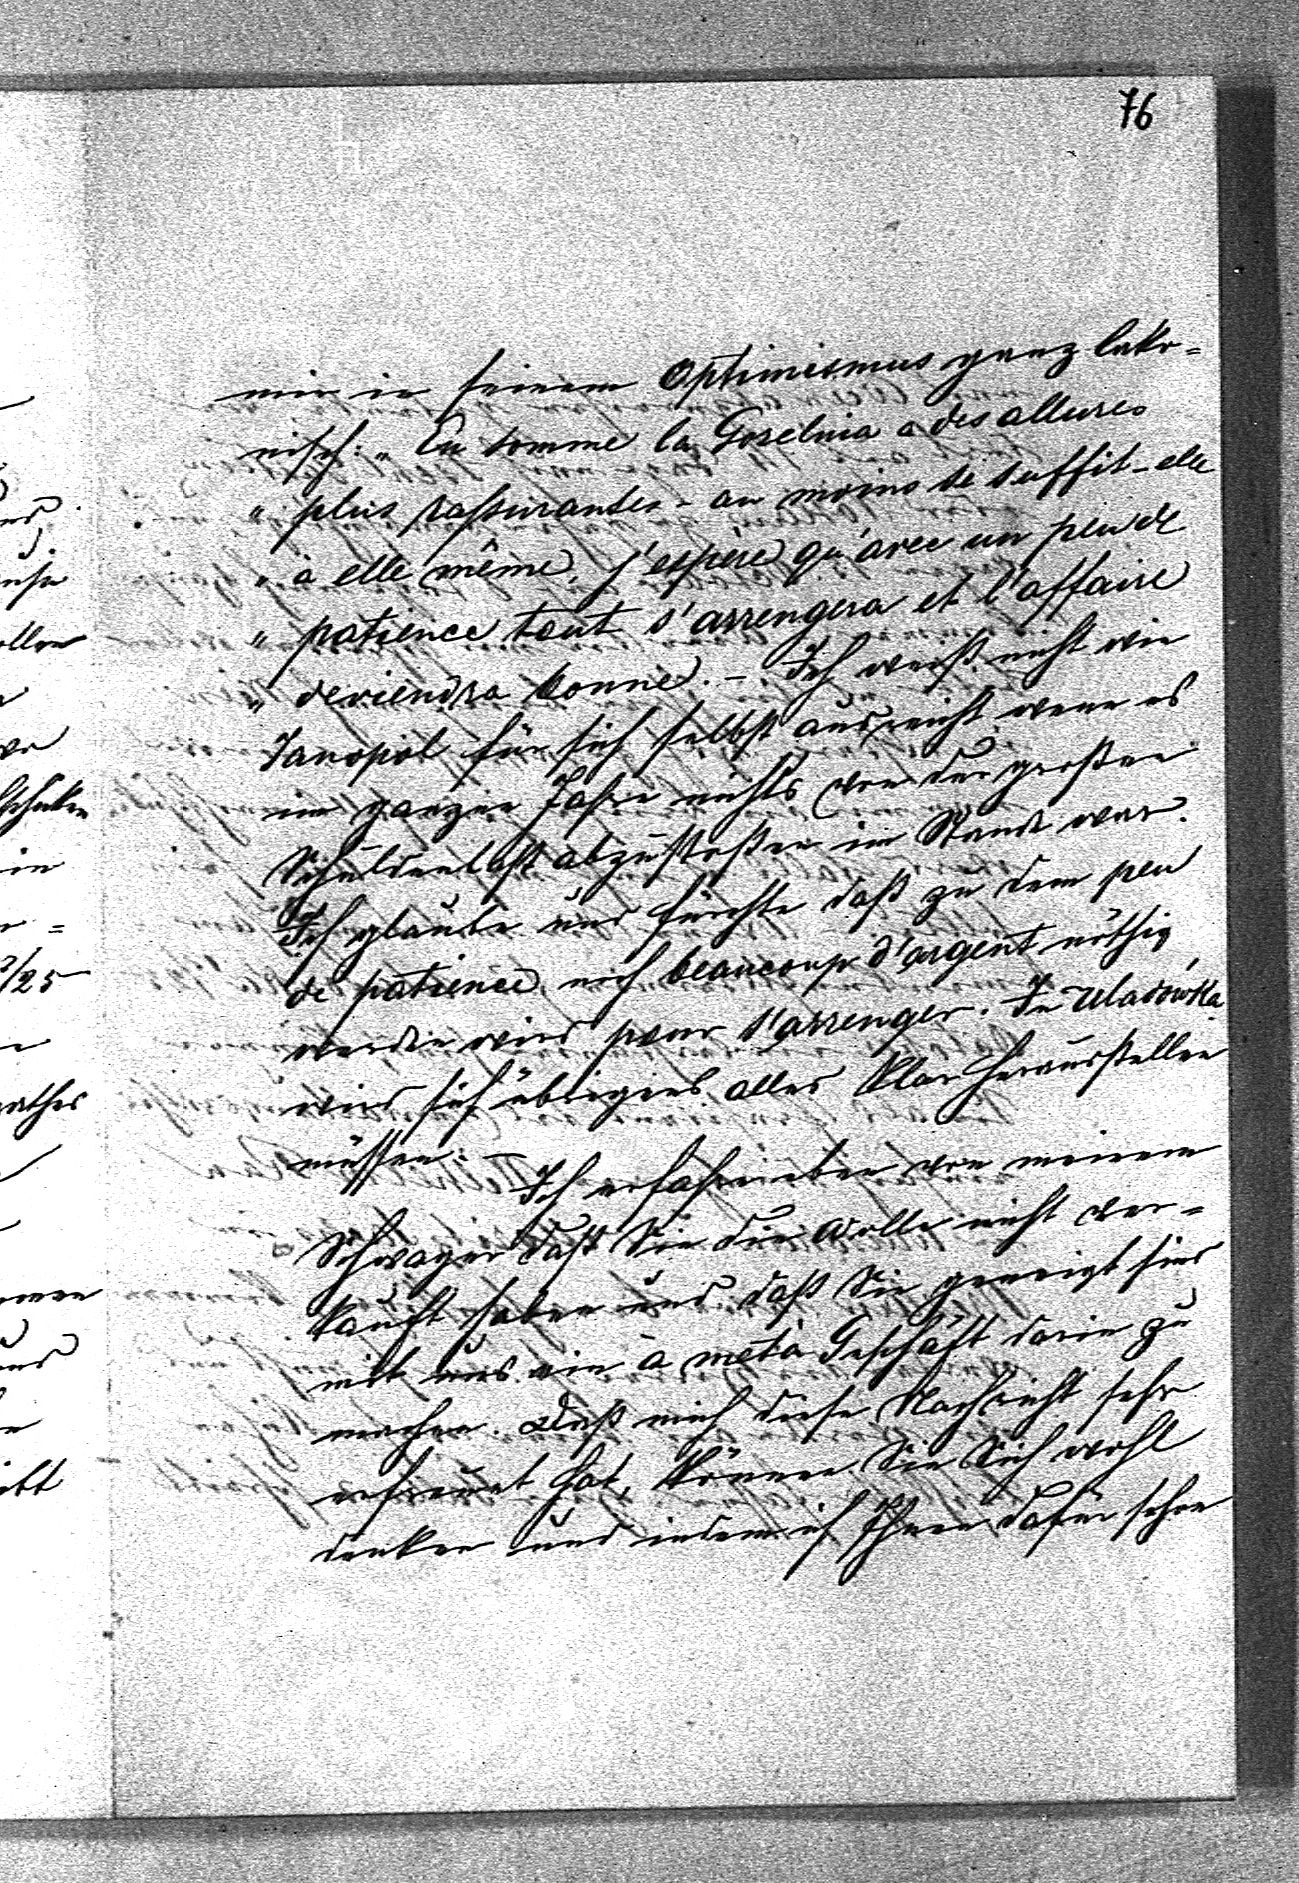 76
mir in seinem Optimismus ganz lako=
nisch: „En somme la Gorelnia a des allures
„ plus rassurantes - au moins se suffit-elle
„ à elle même. J'espère qu'avec un peu de
„ patience tout s'arrengera et l'affaire
„ deviendra bonne. - Ich weiß nicht wie
Janopol für sich selbst ausreicht wenn es
im ganzen Jahre nichts von der großen
Schuldenlast abzustoßen im Stande war.
Ich glaube und fürchte daß zu dem peu
de patience, noch beaucoup d'argent nöthig
werden wird pour s'arrenger. In Uladówka
wird sich übrigens alles klar herausstellen
müssen. -
Ich erfahre eben von meinem
Schwager daß Sie die Wolle nicht ver=
kauft haben und daß Sie geneigt sind
mit uns ein à metà Geschäft darin zu
machen. Daß mich diese Nachricht sehr
erfreut hat, können Sie Sich wohl
denken und indem ich Ihnen dafür schon